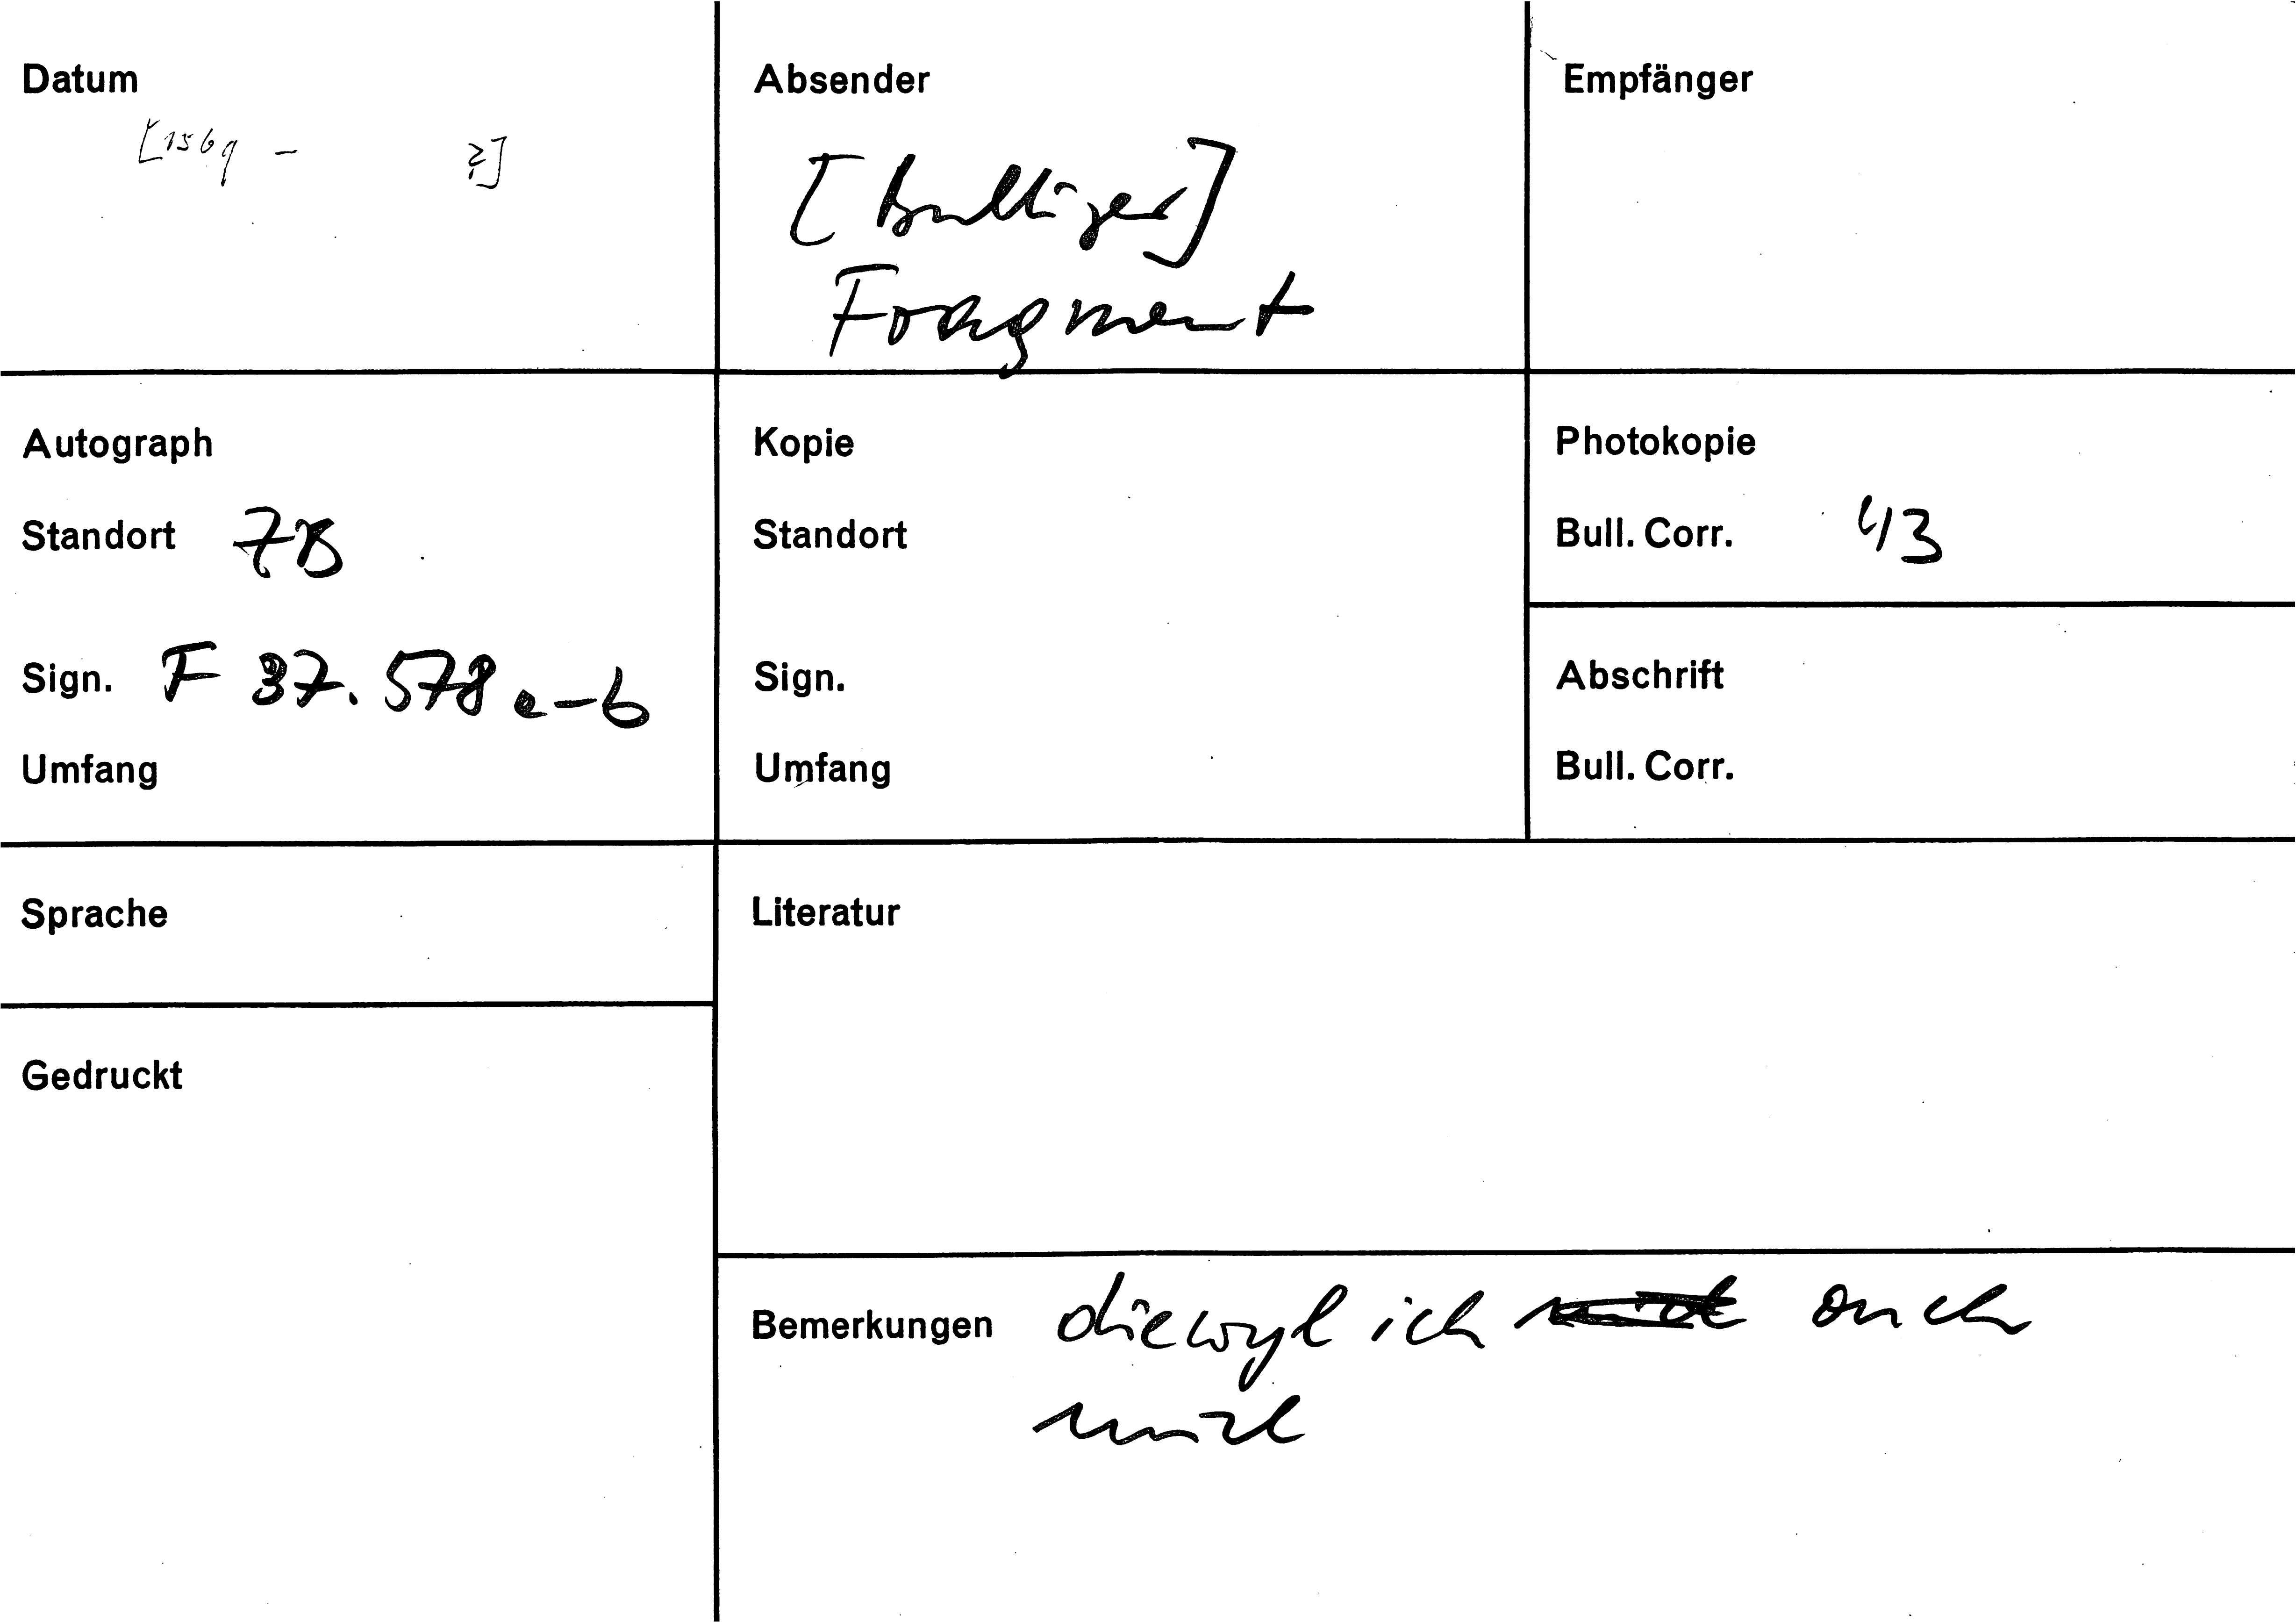 Datum
[1569 - ?]
Absender
[Bullinger]
Fragment
Empfänger
Autograph
Standort ZB
Sign. F 37.578 a-b
Umfang
Kopie
Standort
Sign.
Umfang
Photokopie
Bull. Corr. 43
Abschrift
Bull. Corr.
Sprache
Gedruckt
Literatur
Bemerkungen diewyl ich ouch